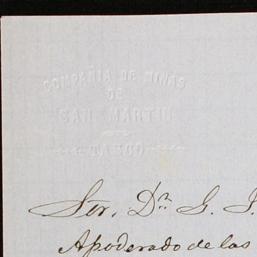 COMPAÑIA DE MINAS
DE
SAN MARTIN
TAXCO
Sr. Dn. G. J.
Apoderado de las